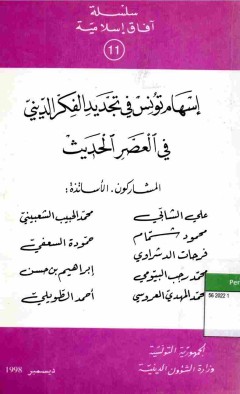 سلسلة
آفاق إسلامية
11
إسهام تونس في تجديد الفكر الديني
في العصر الحديث
المشاركون، الأساتذة:
علي الشابي
محمود شمام
فرحات الدشراوي
محمد رجب البيومي
محمد المهدي العروسي
محمد الحبيب الشعبيني
حمودة السعفي
إبراهيم بن حسن
أحمد الطويلي
الجمهورية التونسية
وزارة الشؤون الدينية
ديسمبر 1998
Per
56 2022 1